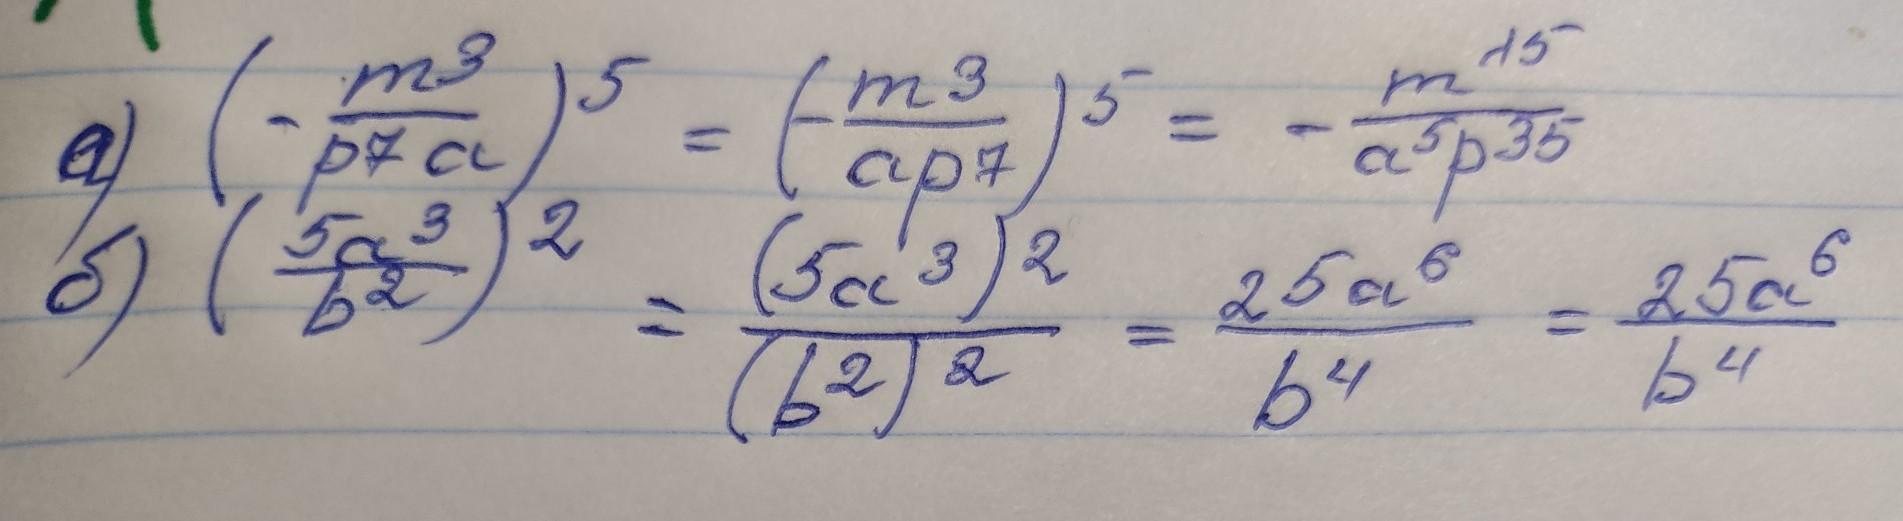 а) (- m³/p⁷a)⁵ = (- m³/ap⁷)⁵ = - m¹⁵/a⁵p³⁵
б) (5a³/b²)² = (5a³)²/(b²)² = 25a⁶/b⁴ = 25a⁶/b⁴